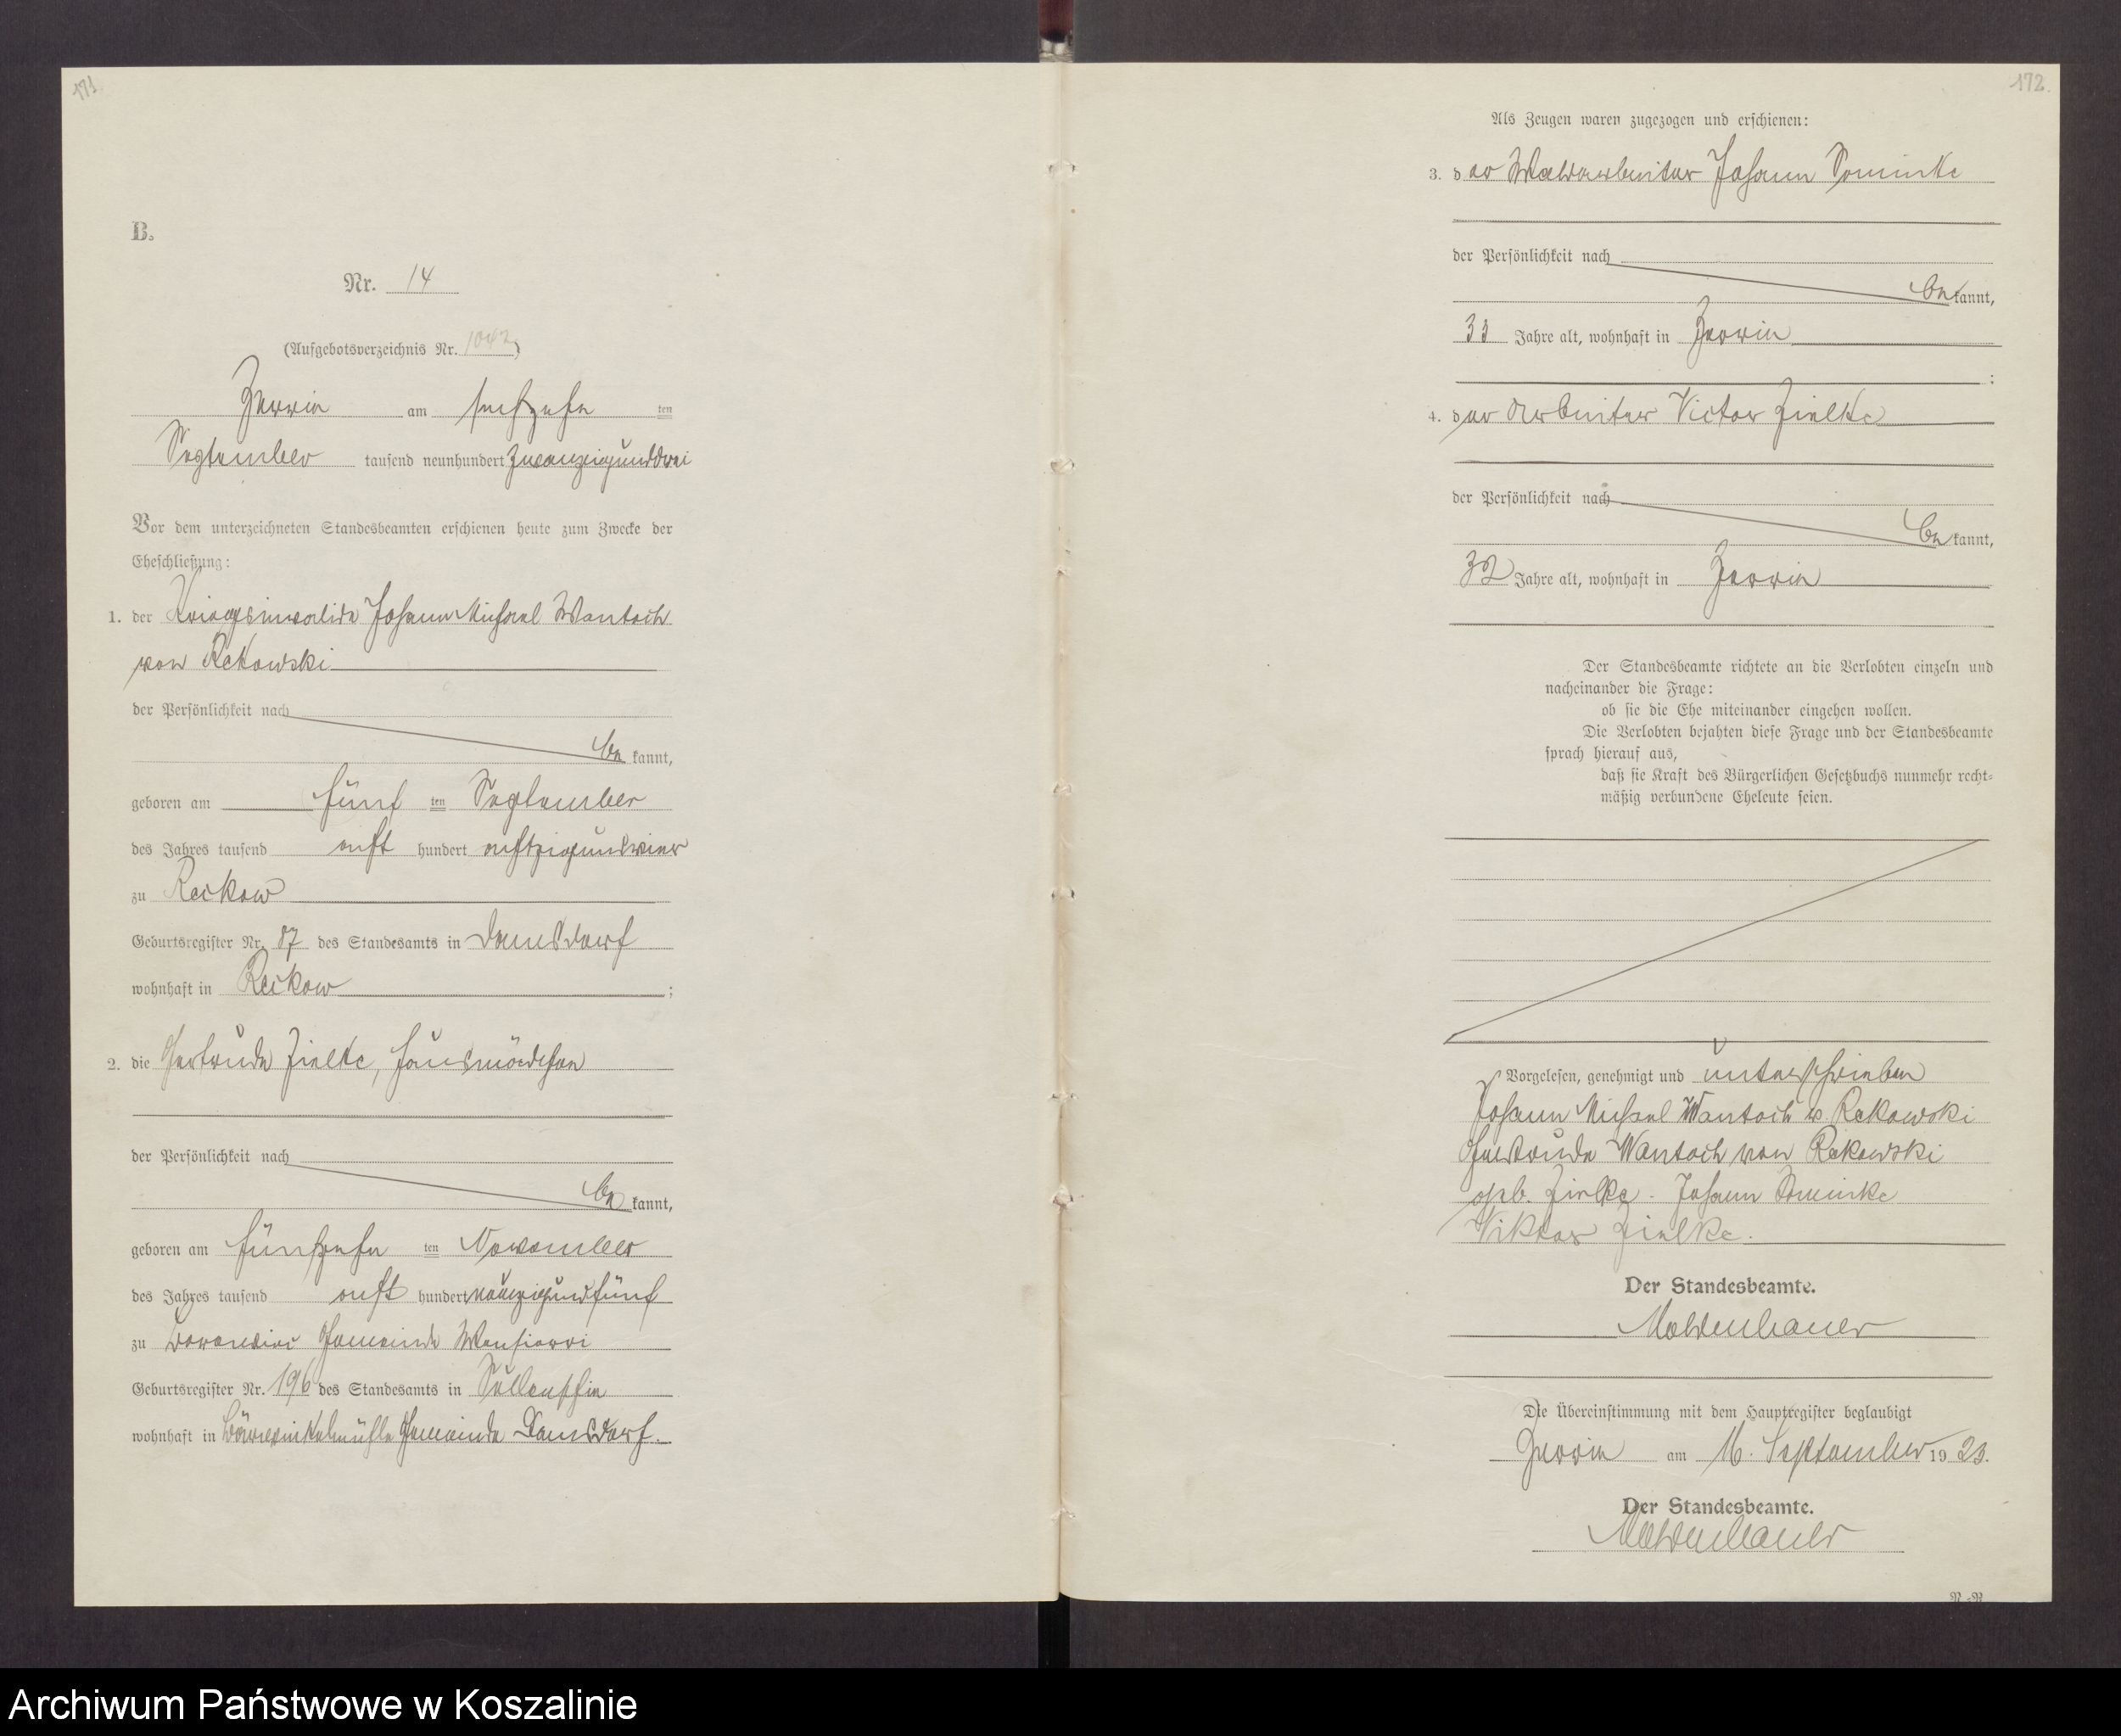 171
B.
Nr. 14
(Aufgebotsverzeichnis Nr. )
Zerrin am sechzehn ten
September tausend neunhundert zwanzigunddrei
Vor dem unterzeichneten Standesbeamten erschienen heute zum Zwecke der
Eheschließung:
1. der Kriegsinvalide Johann Michael Wantoch
von Rekowski
der Persönlichkeit nach
be kannt,
geboren am fünf ten September
des Jahres tausend acht hundert achtzigundvier
zu Reckow
Geburtsregister Nr. 87 des Standesamts in Damsdorf
wohnhaft in Reckow ;
2. die Gertrude Zielke, Hausmädchen
der Persönlichkeit nach
be kannt,
geboren am fünfzehn ten November
des Jahres tausend acht hundert neunzigundfünf
zu Gemeinde
Geburtsregister Nr. 196 des Standesamts in Sullenschin
wohnhaft in Bärwinkelmühle Gemeinde Damsdorf.
172.
Als Zeugen waren zugezogen und erschienen:
3. d er Waldarbeiter Johann Dominke
der Persönlichkeit nach
be kannt,
33 Jahre alt, wohnhaft in Zerrin
;
4. d er Arbeiter Victor Zielke
der Persönlichkeit nach
be kannt,
32 Jahre alt, wohnhaft in Zerrin
Der Standesbeamte richtete an die Verlobten einzeln und
nacheinander die Frage:
ob sie die Ehe miteinander eingehen wollen.
Die Verlobten bejahten diese Frage und der Standesbeamte
sprach hierauf aus,
daß sie Kraft des Bürgerlichen Gesetzbuchs nunmehr recht-
mäßig verbundene Eheleute seien.
Vorgelesen, genehmigt und unterschrieben
Johann Michael Wantoch v. Rekowski
Gertrude Wantoch von Rekowski
geb. Zielke. Johann Dominke
Viktor Zielke.
Der Standesbeamte.
Moldenhauer
Die Übereinstimmung mit dem Hauptregister beglaubigt
Zerrin am 16. September 19 23.
Der Standesbeamte.
Moldenhauer
Archiwum Państwowe w Koszalinie